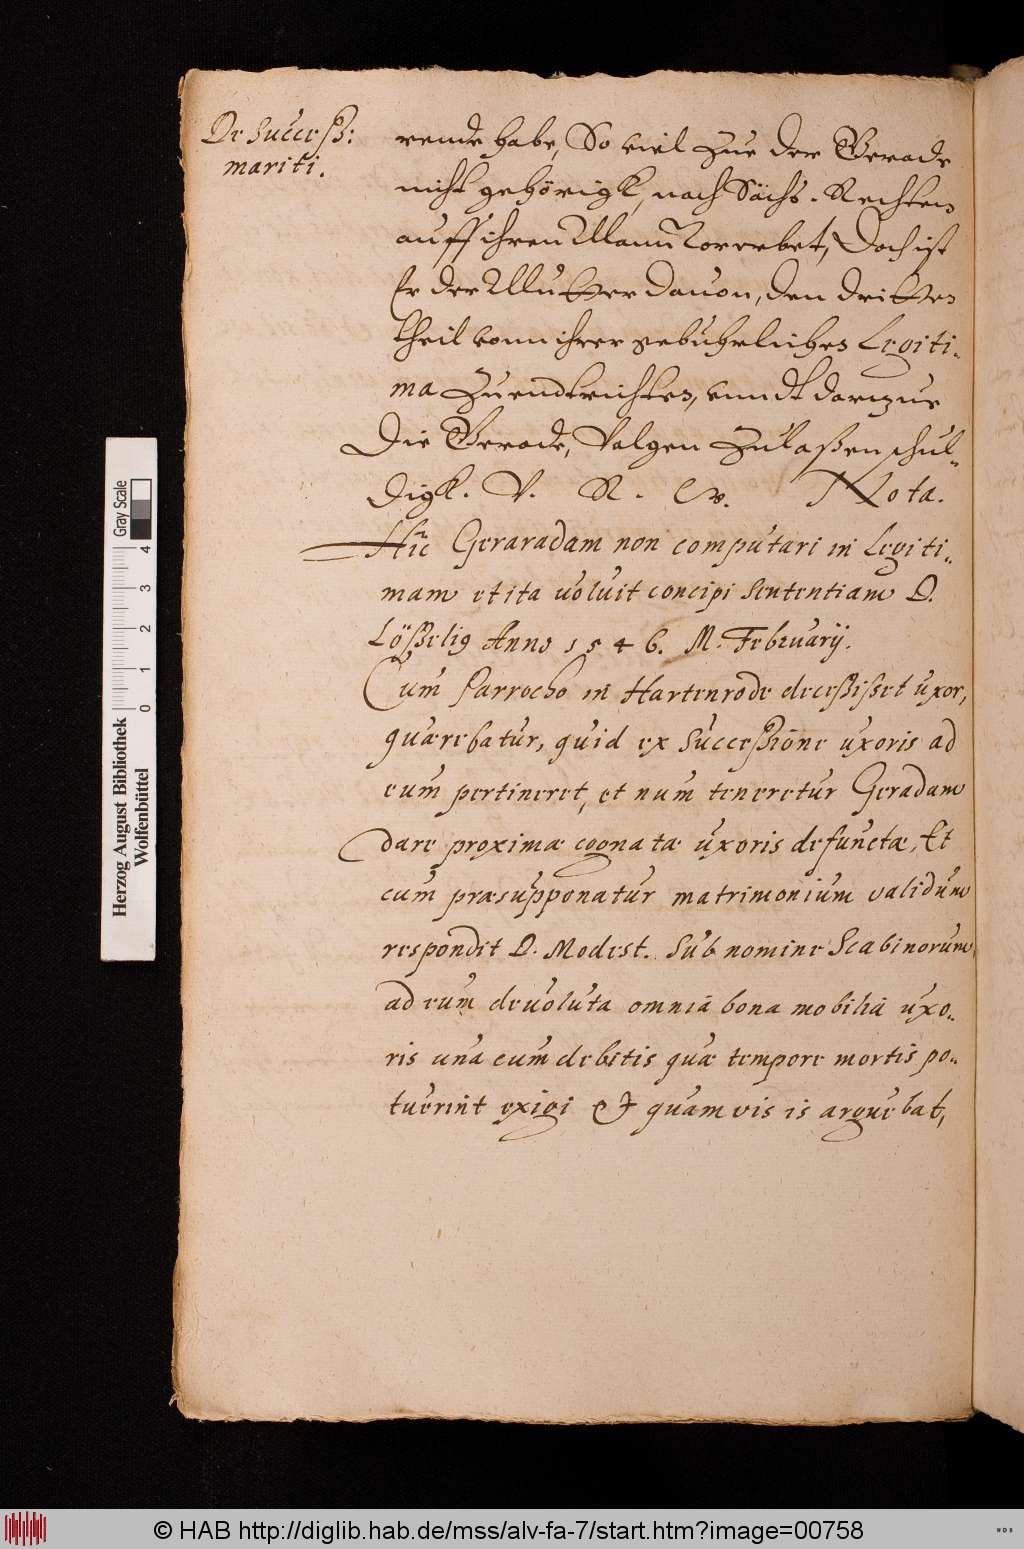 De Success:
mariti.
rende habe, So viel zue der Gerade
nicht gehörigk, nach Sächs. Rechten
auff ihren Mann vorerbet, Doch ist
Er der Mutter dauon, den dritten
theil vonn ihrer gebuhrlichen Legiti-
ma zuendtrichten, vnndt darzue
Die Gerade, Volgen zulaßen schul-
digk. V. R. W. Nota.
Hic Geraradam non computari in Legiti-
mam et ita uoluit concipi sententiam D.
Lößelig Anno 1546. M. February.
Cum Parrocho in Hartenrode decessisset uxor,
quærebatur, quid ex Successione uxoris ad
eum pertineret, et num teneretur Geradam
dare proximæ cognatæ uxoris defunctæ, Et
cum præsupponatur matrimonium validum
respondit D. Modest. Sub nomine Scabinorum,
ad eum deuoluta omnia bona mobilia uxo-
ris una cum debitis quæ tempore mortis po-
tuerint exigi Et quamvis is arguebat,
Herzog August Bibliothek
Wolfenbüttel
Gray Scale
0 1 2 3 4
© HAB http://diglib.hab.de/mss/alv-fa-7/start.htm?image=00758